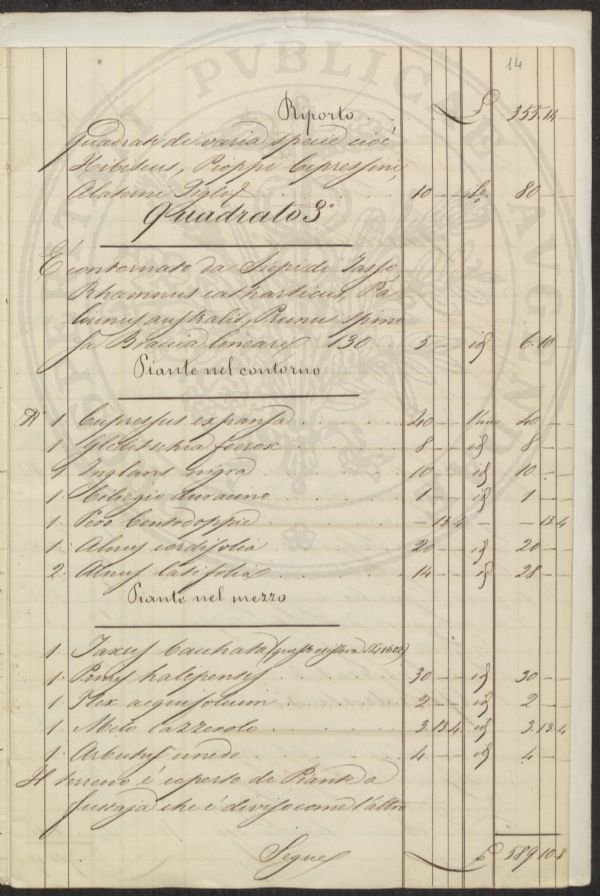 14
Riporto . . £ 355.14 -
quadrati di varia specie cioè
Hibiscus, Pioppi Cipressini,
Alaterni Tigli 10 - - 80 - -
Quadrato 3°
E' contornato da Siepi di Tasso,
Rhamnus catharticus, Pa
liurus australis, Prunus spino
sa Braccia lineari 130 5 - id 6.10
Piante nel contorno
N° 1 Cupressus expansa 40 - - l'uno 40 - -
1 Gleditschia feerox 8 - - id 8 - -
1 Juglans nigra 10 - - id 10 - -
1. Ciliegio duracino 1 - - id 1 - -
1. Pero - 13.4 - - 13.4
1. Alnus cordifolia 20 - - id 20 - -
2. Alnus latifolia 14 - - id 28 - -
Piante nel mezzo
1 Taxus baccata
1 Pinus halepensis 30 - - id 30 - -
1 Ilex aequifolium 2 - - id 2 - -
1. Melo lazzerolo 3.13.4 id 3.13.4
1. Arbutus unedo 4 - - id 4 - -
Il terreno è coperto di Piante a
fustaja che è diviso come l'altro
Segue £ 589.10.8
PUBLICAE